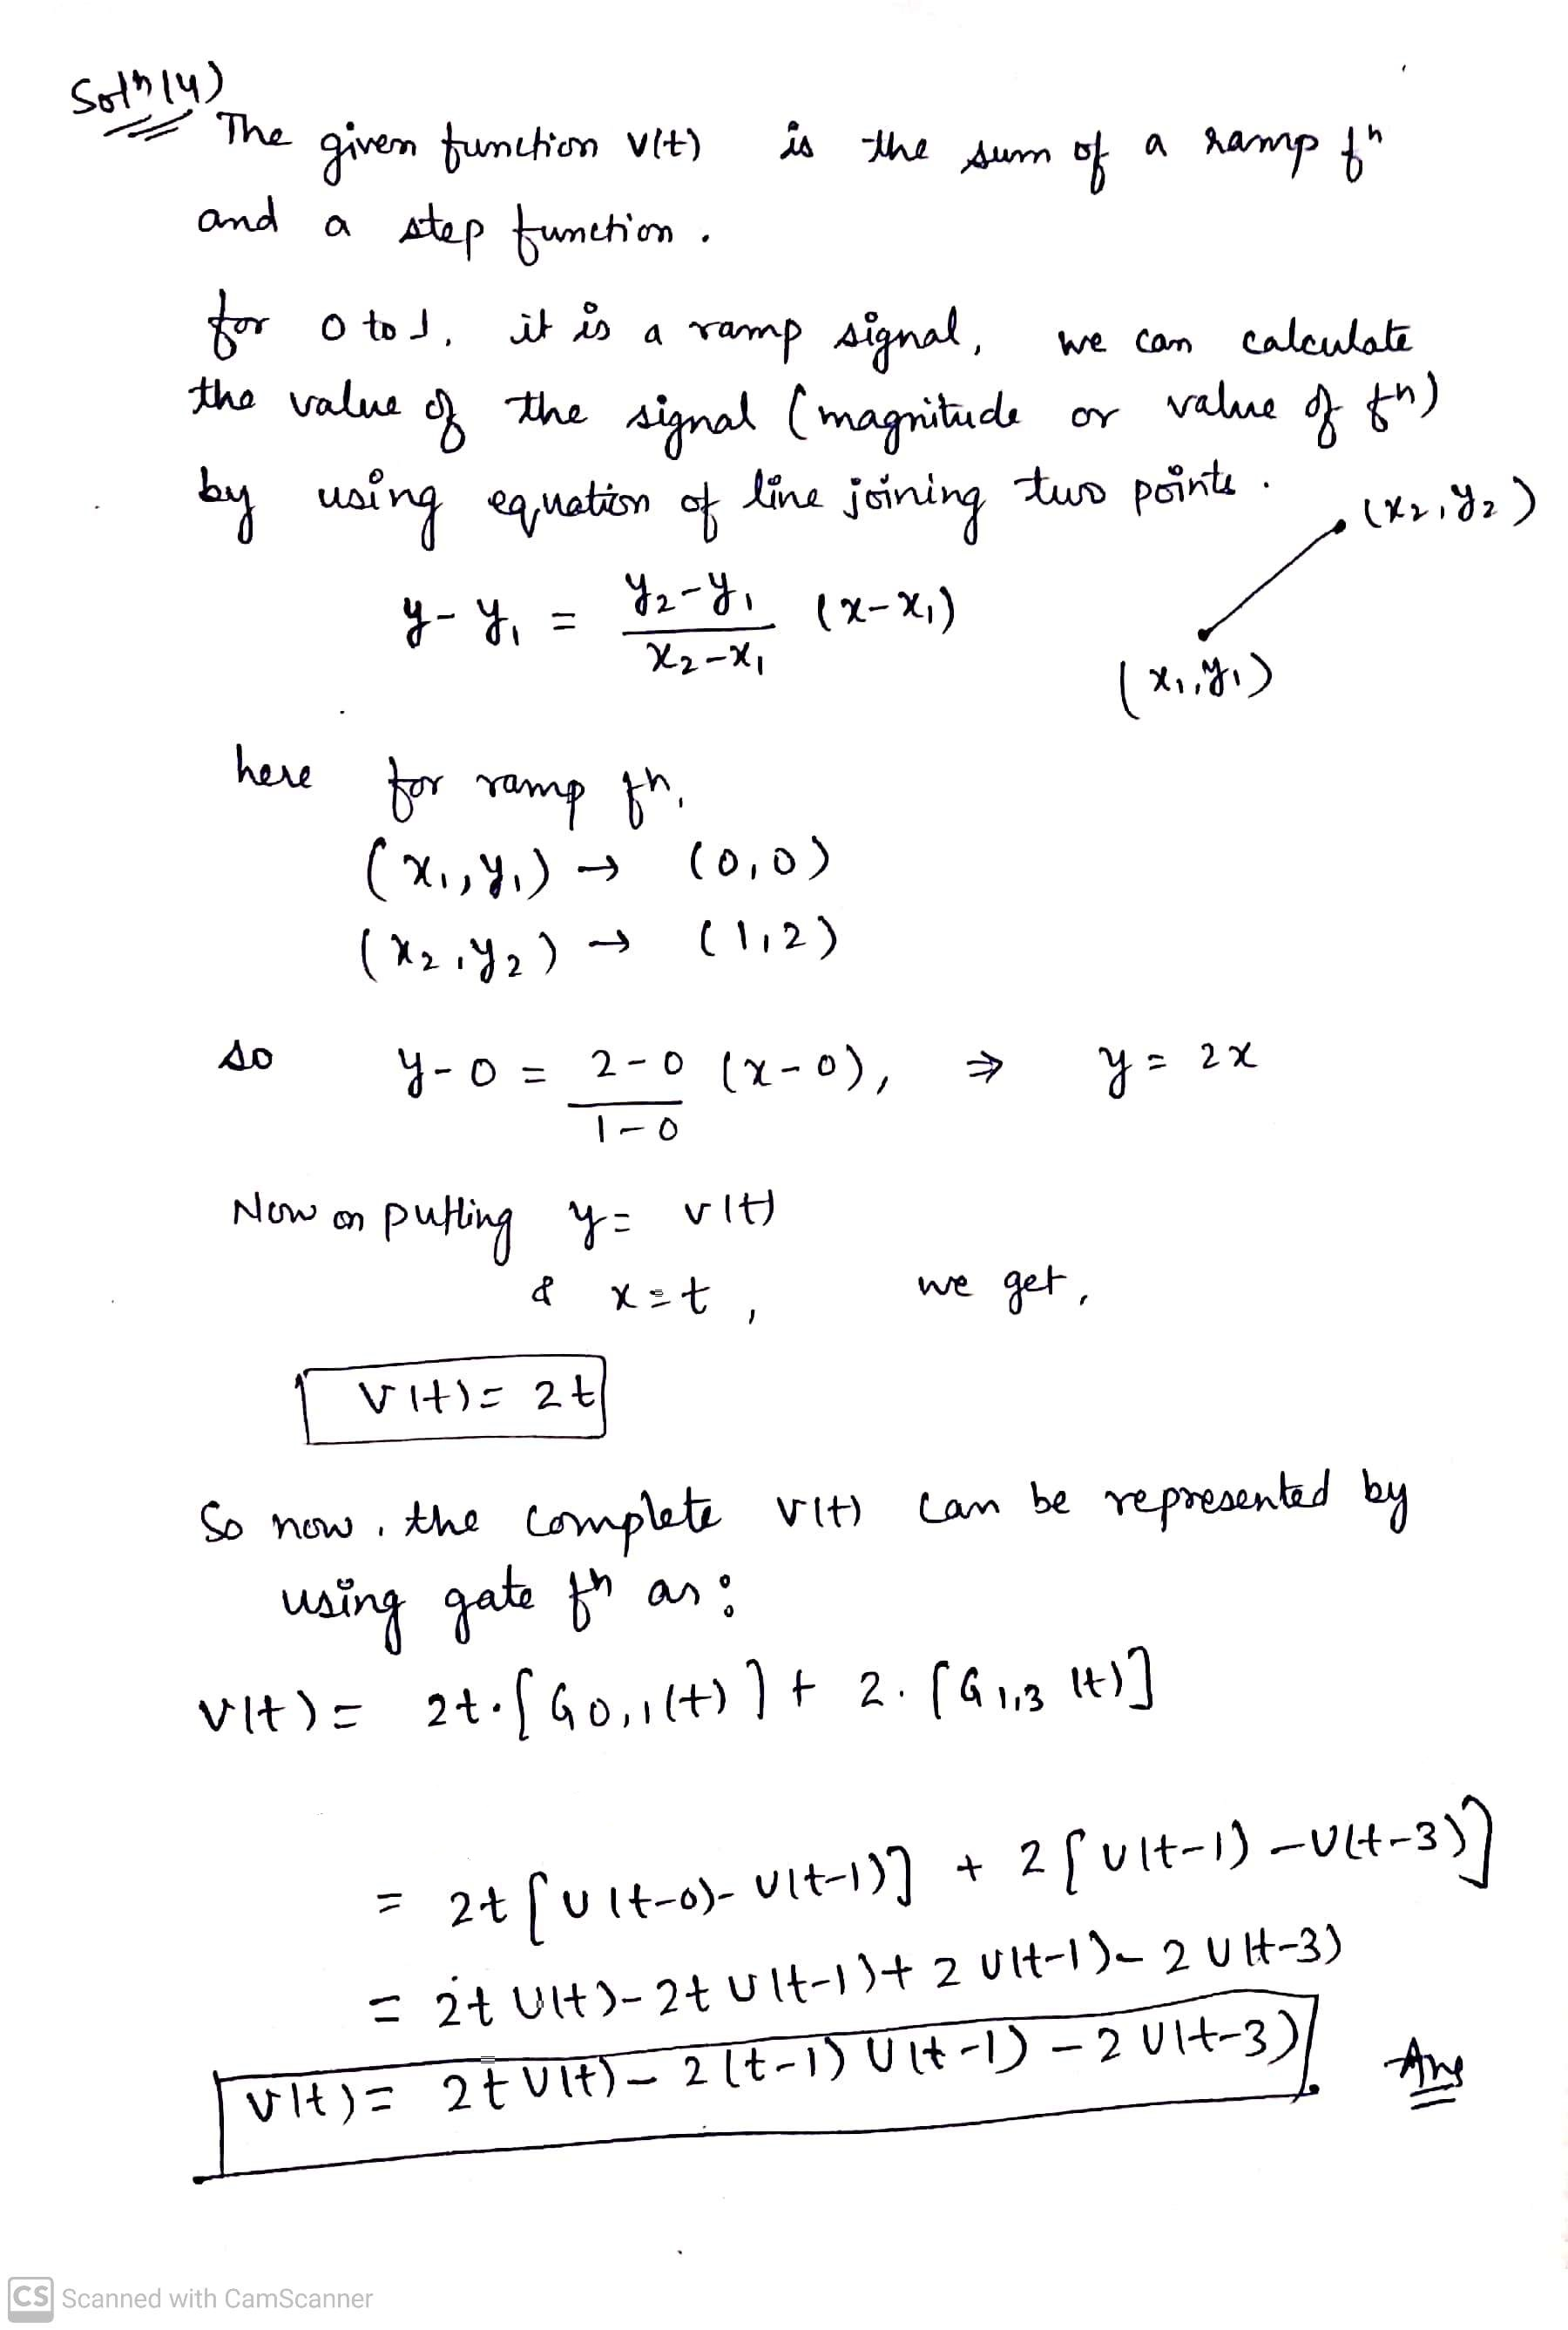 Soln 14)
The given function v(t) is the sum of a ramp fn
and a step function.
for 0 to 1, it is a ramp signal, we can calculate
the value of the signal (magnitude or value of fn)
by using equation of line joining two points.
(x2, y2)
y - y1 = y2-y1 / x2-x1 (x-x1)
(x1, y1)
here for ramp fn,
(x1, y1) → (0,0)
(x2, y2) → (1,2)
so y-0 = 2-0 / 1-0 (x-0), ⇒ y = 2x
Now on putting y = v(t)
& x=t, we get,
v(t) = 2t
So now, the complete v(t) can be represented by
using gate fn as:
v(t) = 2t.[G0,1(t)] + 2.[G1,3(t)]
= 2t[U(t-0)-U(t-1)] + 2[U(t-1)-U(t-3)]
= 2t U(t)-2t U(t-1)+2 U(t-1)-2 U(t-3)
v(t) = 2t U(t) - 2(t-1) U(t-1) - 2 U(t-3). Ans
CS Scanned with CamScanner